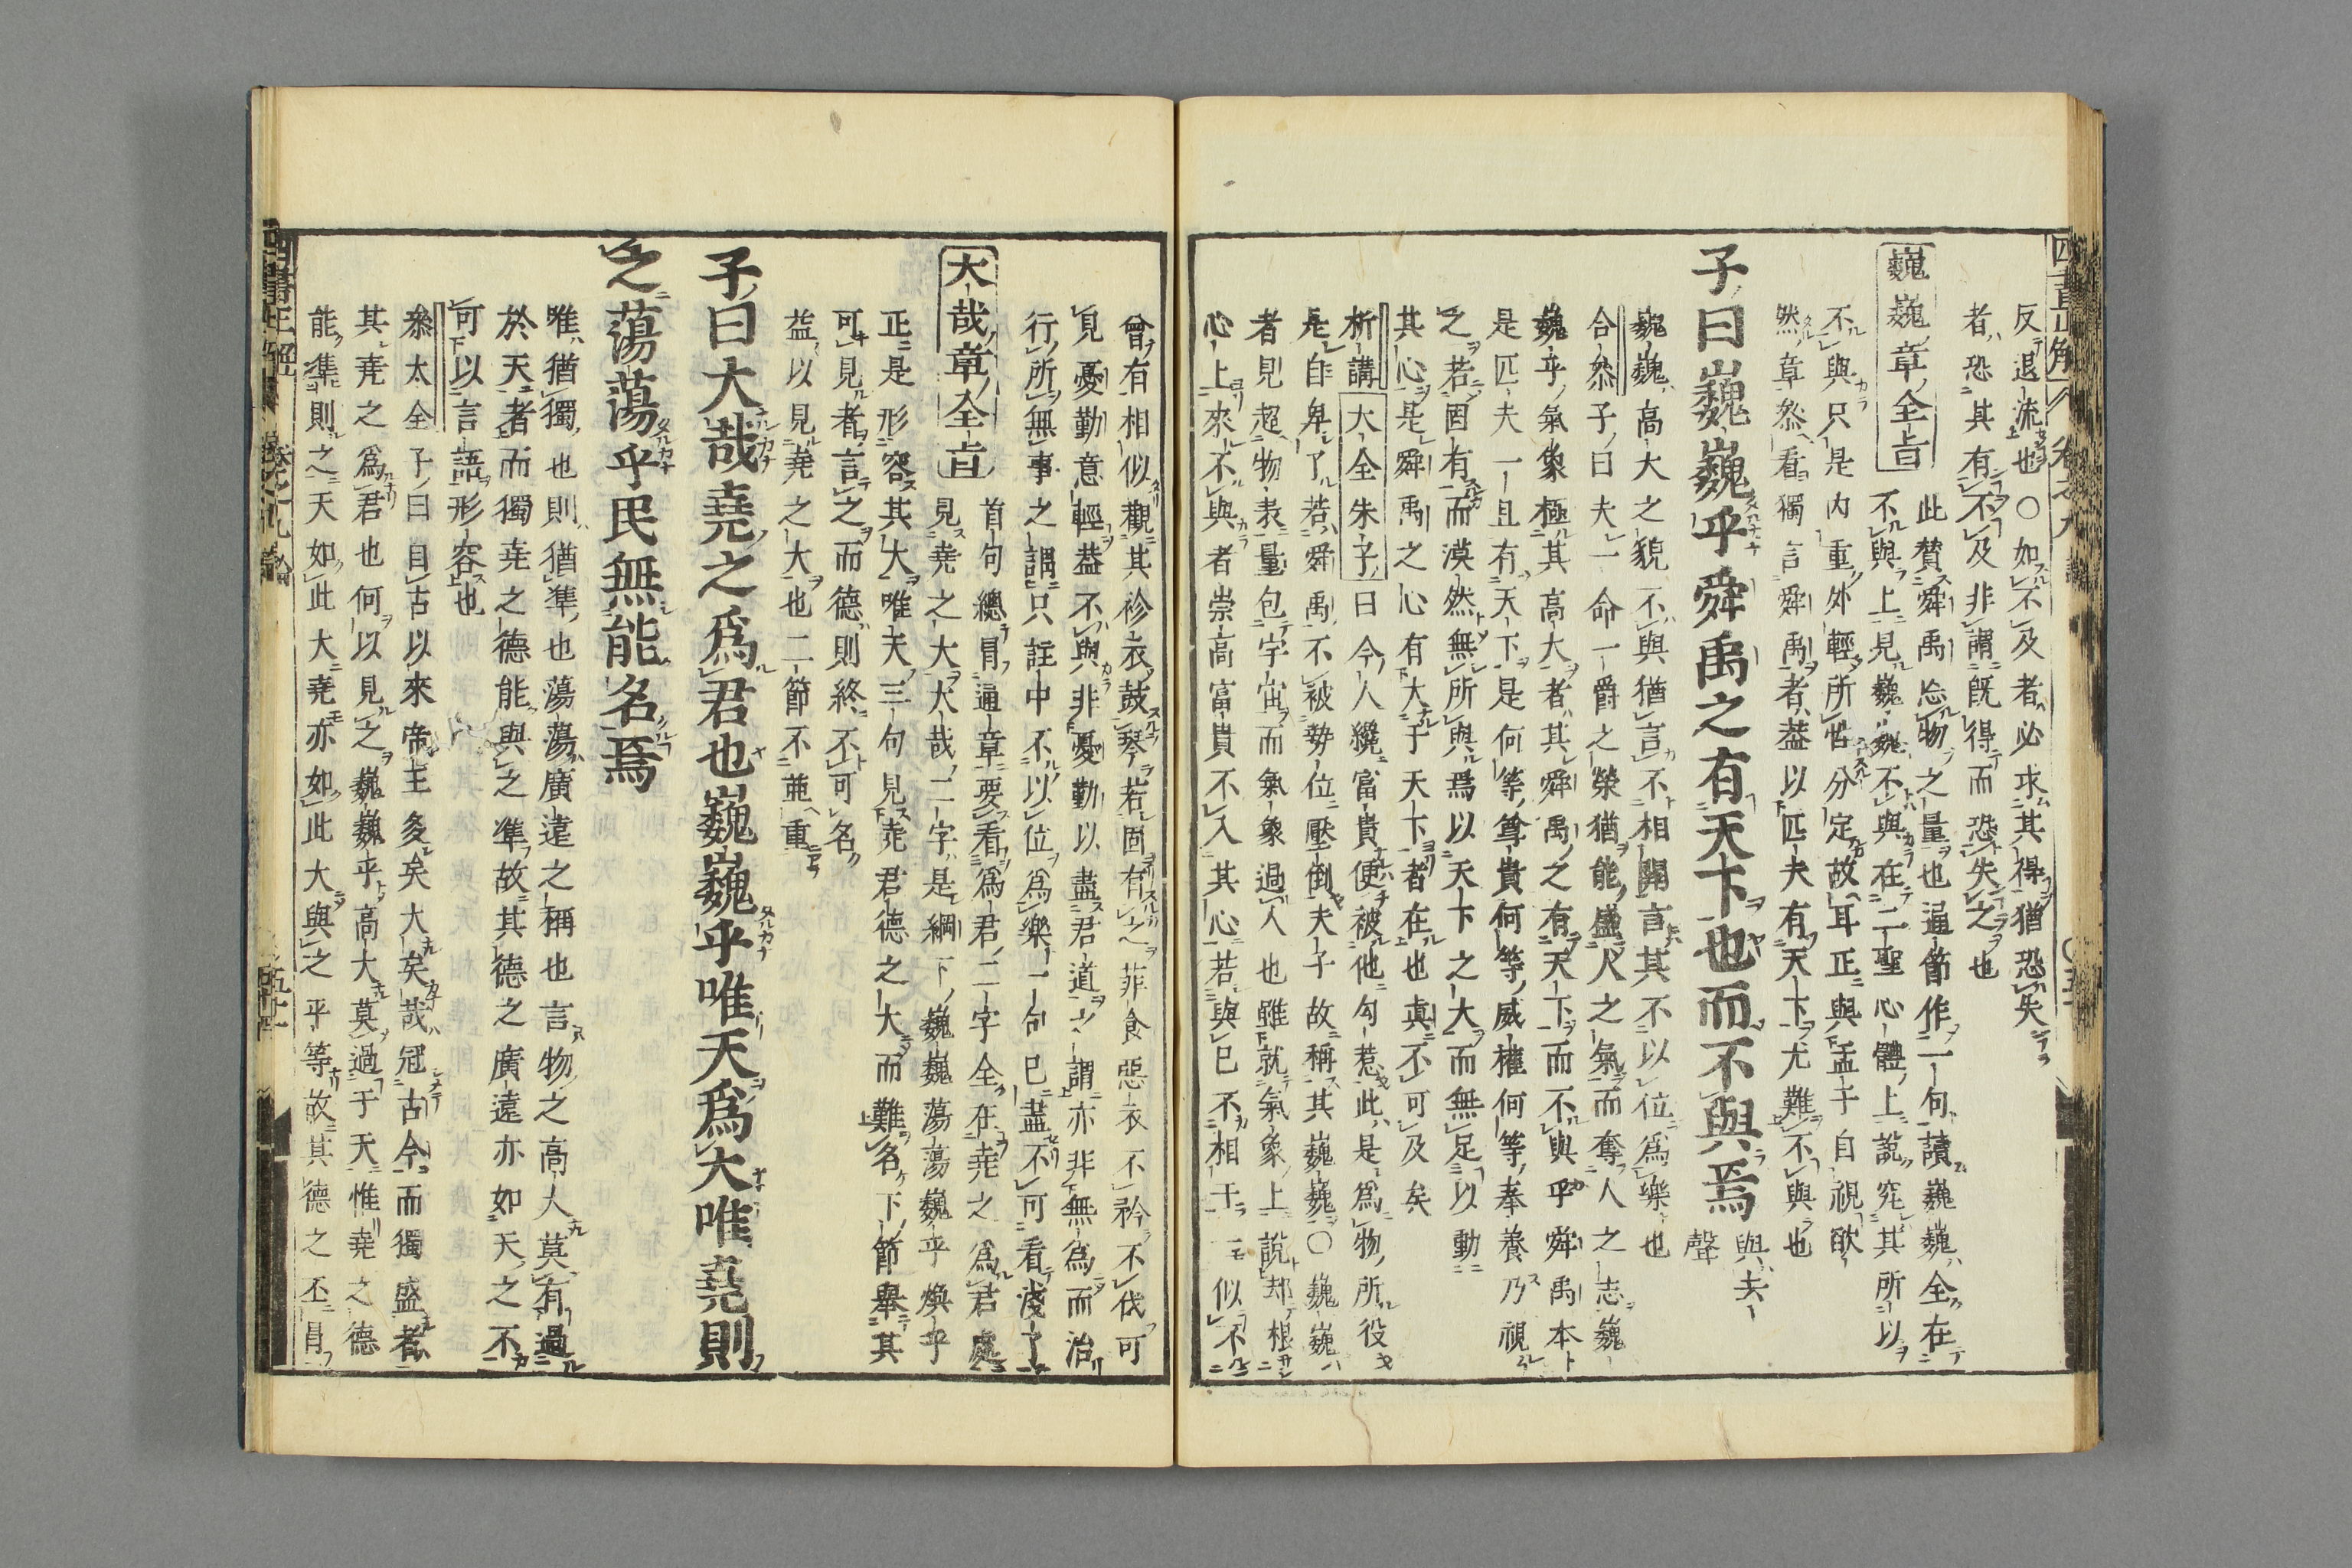 反退-流也○如不及者必求其得猶恐失
者恐其有不及非謂既得而恐失之也
巍巍章全旨
此賛舜禹忘物之量也通節作一句讀巍巍全在
不與上見巍巍不與在二聖心體上說究其所以
不與只是内重外輕所性分定故耳正與孟子自視欿
然章叅看獨言舜禹者葢以匹夫有天下尤難不與也
子曰巍巍乎舜禹之有天下也而不與焉
與去
聲
巍巍高大之貌不與猶言不相關言其不以位爲樂也
合叅子曰夫一命一爵之榮猶能盛人之氣而奪人之志巍
巍乎氣象極其高大者其舜禹之有天下而不與乎舜禹本
是匹夫一旦有天下是何等尊貴何等威權何等奉養乃視
之若固有而漠然無所與焉以天下之大而無足以動
其心是舜禹之心有大于天下者在也眞不可及矣
析講大全朱子曰今人纔富貴便被他勾惹此是爲物所役
是自卑了若舜禹不被勢位壓倒夫子故稱其巍巍○巍巍
者見超物表量包宇宙而氣象過人也雖就氣象上說却根
心上來不與者崇高富貴不入其心若與己不相干一似不
曾有相似觀其袗衣鼓琴若固有之菲食惡衣不矜不伐可
見憂勤意輕葢不與非憂勤以盡君道之謂亦非無爲而治
行所無事之謂只註中不以位爲樂一句已盡不可看淺了
大哉章全旨
首句總冒通章要看爲君二字全在堯之爲君處
見堯之大大哉二字是綱下巍巍蕩蕩巍乎煥乎
正是形容其大唯天三句見堯君德之大而難名下節舉其
可見者言之而德則終不可名
益以見堯之大也二節不並重
子曰大哉堯之爲君也巍巍乎唯天爲大唯堯則
之蕩蕩乎民無能名焉
唯猶獨也則猶準也蕩蕩廣遠之稱也言物之高大莫有過
於天者而獨堯之德能與之準故其德之廣遠亦如天之不
可以言語形容也
叅太全子曰自古以來帝王多矣大矣哉冠古今而獨盛者
其堯之爲君也何以見之巍巍乎高大莫過于天惟堯之德
能準則之天如此大堯亦如此大與之平等故其德之丕冒